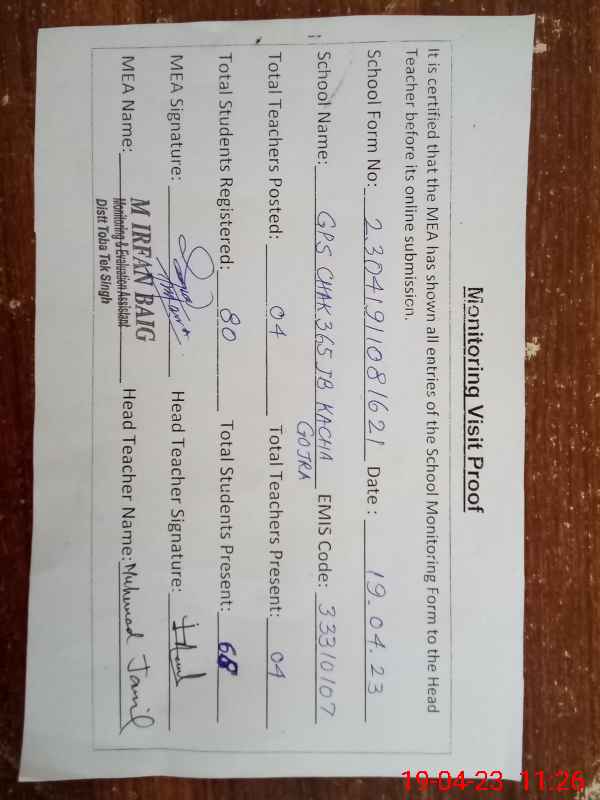 Monitoring Visit Proof
It is certified that the MEA has shown all entries of the School Monitoring Form to the Head
Teacher before its online submission.
School Form No: 2304191108162 1 Date : 19.04.23
School Name: GPS CHAK 365 JB KACHA GOJRA EMIS Code: 33310107
Total Teachers Posted: 04 Total Teachers Present: 04
Total Students Registered: 80 Total Students Present: 68
MEA Signature: Head Teacher Signature:
MEA Name: M IRFAN BAIG Head Teacher Name: Muhemad Jamil
Monitoring & Evaluation Assistant
Distt Toba Tek Singh
19-04-23 11:26